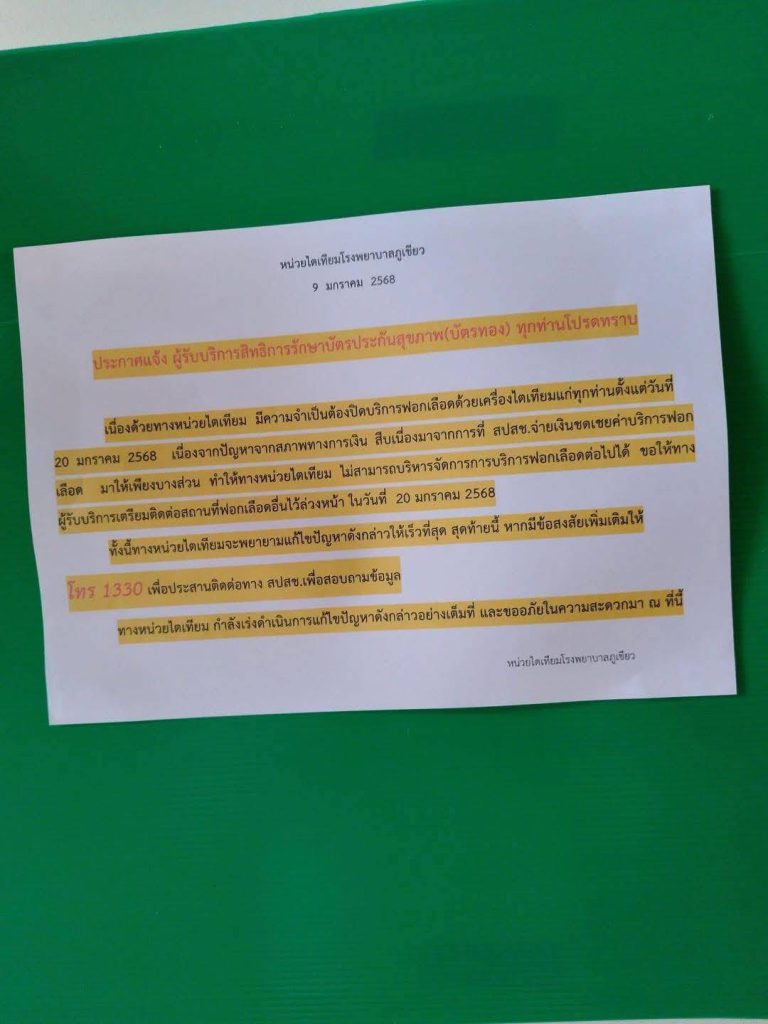 หน่วยไตเทียมโรงพยาบาลภูเขียว
9 มกราคม 2568
ประกาศแจ้ง ผู้รับบริการสิทธิการรักษาบัตรประกันสุขภาพ(บัตรทอง) ทุกท่านโปรดทราบ
เนื่องด้วยทางหน่วยไตเทียม มีความจำเป็นต้องปิดบริการฟอกเลือดด้วยเครื่องไตเทียมแก่ทุกท่านตั้งแต่วันที่
20 มกราคม 2568 เนื่องจากปัญหาจากสภาพทางการเงิน สืบเนื่องมาจากการที่ สปสช.จ่ายเงินชดเชยค่าบริการฟอก
เลือด มาให้เพียงบางส่วน ทำให้ทางหน่วยไตเทียม ไม่สามารถบริหารจัดการการบริการฟอกเลือดต่อไปได้ ขอให้ทาง
ผู้รับบริการเตรียมติดต่อสถานที่ฟอกเลือดอื่นไว้ล่วงหน้า ในวันที่ 20 มกราคม 2568
ทั้งนี้ทางหน่วยไตเทียมจะพยายามแก้ไขปัญหาดังกล่าวให้เร็วที่สุด สุดท้ายนี้ หากมีข้อสงสัยเพิ่มเติมให้
โทร 1330 เพื่อประสานติดต่อทาง สปสช.เพื่อสอบถามข้อมูล
ทางหน่วยไตเทียม กำลังเร่งดำเนินการแก้ไขปัญหาดังกล่าวอย่างเต็มที่ และขออภัยในความสะดวกมา ณ ที่นี้
หน่วยไตเทียมโรงพยาบาลภูเขียว